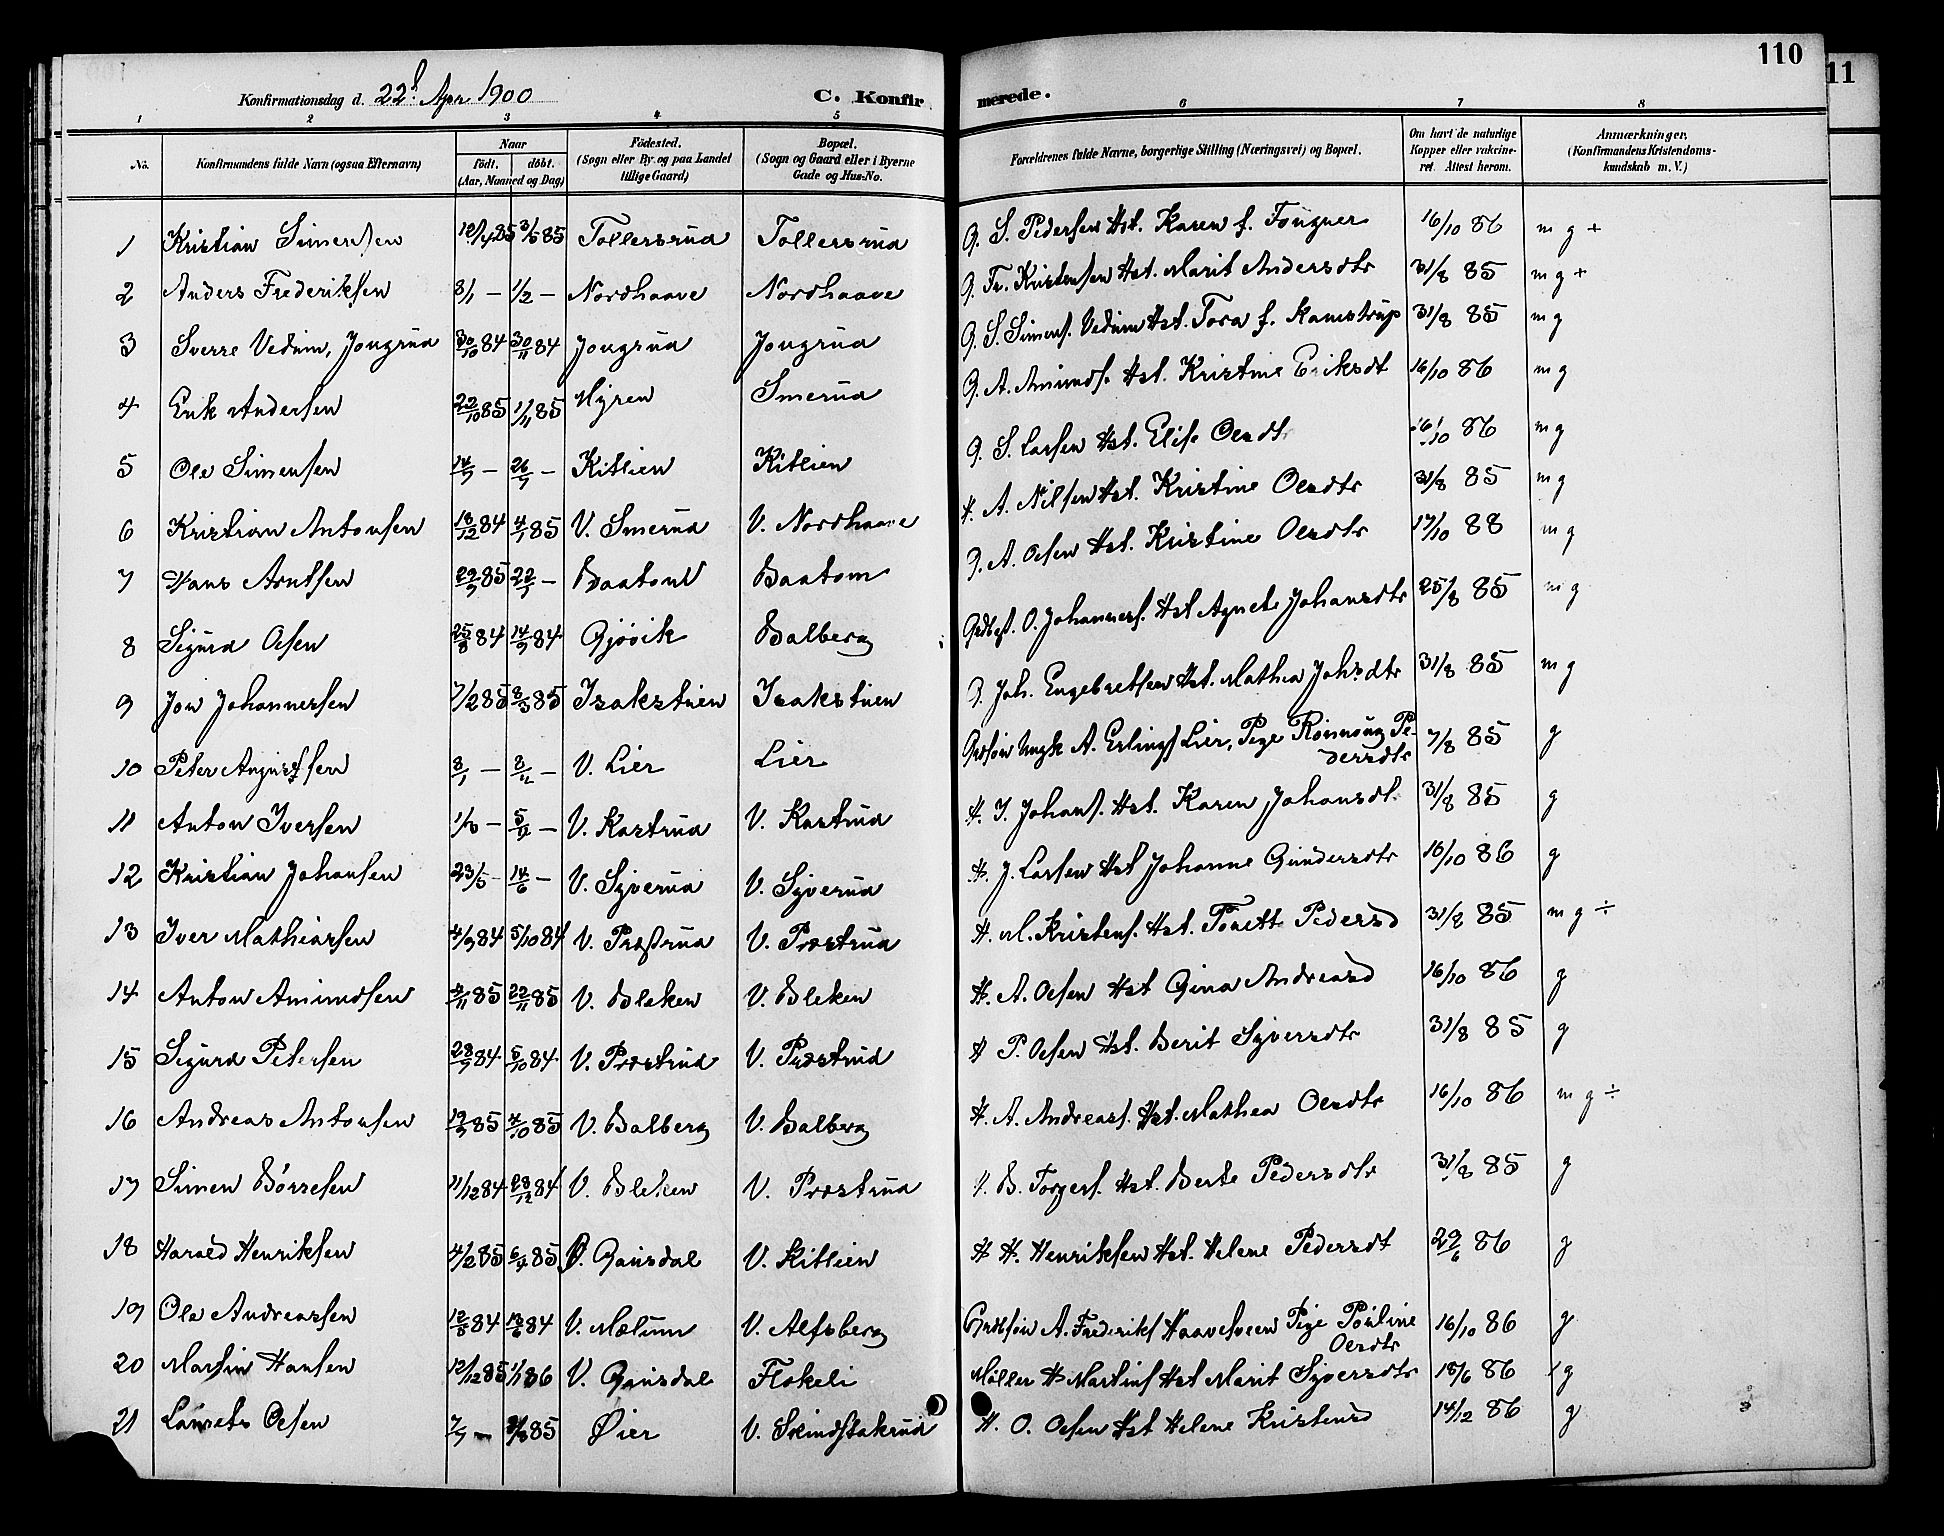 110
11
Konfirmationsdag d. 22d Apr. 1900 C. Konfirmerede.
1 2 3 4 5 6 7 8
No. Konfirmandens fulde Navn (ogsaa Efternavn) Naar født. døbt. (Aar, Maaned og Dag) Fødested. (Sogn eller By og paa Landet tillige Gaard) Bopæl. (Sogn og Gaard eller i Byerne Gade og Hus-No. Forældrenes fulde Navne, borgerlige Stilling (Næringsvei) og Bopæl. Om havt de naturlige Kopper eller vakcineret. Attest herom. Anmærkninger. (Konfirmandens Kristendomskundskab m. V.)
1 Kristian Simensen 12/4 85 3/5 85 Tollersrud Tollersrud G. S. Pedersen Hst. Karen f. Fougner 16/10 86 m g +
2 Anders Frederiksen 8/1 — 1/2 — Nordhaave Nordhaave G. Fr. Kristensen Hst. Marit Andersdtr 31/8 85 m g +
3 Sverre Vedum, Jougrud 30/10 84 30/11 84 Jougrud Jougrud G. S. Simens. Vedum Hst. Tora f. Kamstrup 31/8 85 m g
4 Erik Andersen 22/10 85 1/11 85 Myren Smerud G. A. Amunds. Hst. Kristine Eriksdt 16/10 86 m g
5 Ole Simensen 14/7 — 26/7 — Kitlien Kitlien G. S. Larsen Hst. Elise Olsdtr 16/10 86 m g
6 Kristian Antonsen 18/12 84 4/1 85 V. Smerud V. Nordhaave H. A. Nilsen Hst. Kristine Olsdtr 31/8 85 m g
7 Hans Arntsen 29/3 85 22/5 — Baatom Baatom G. A. Olsen Hst. Kristine Olsdtr 17/10 88 m g
8 Sigurd Olsen 25/8 84 14/9 84 Gjøvik Balberg Grdbgst. O. Johanness. Hst Agnete Johansdtr 25/8 85 m g
9 Jon Johannessen 7/2 85 8/3 85 Isakstuen Isakstuen G. Joh. Engebretsen Hst. Mathea Johsdtr 31/8 85 m g
10 Peter Augustsen 8/1 — 8/4 — V. Lier Lier Grdsøn Ungk A. Erlings Lier, Pige Rønnaug Pedersdtr 7/8 85 g
11 Anton Iversen 1/3 — 5/4 — V. Rostrud V. Rostrud H. I. Johans. Hst. Karen Johansdt. 31/8 85 g
12 Kristian Johansen 23/5 — 14/6 — V. Syverud V. Syverud H. J. Larsen Hst Johanne Gundersdtr 16/10 86 g
13 Iver Mathiassen 4/9 84 5/10 84 V. Prestrud V. Prestrud H. M. Kristens. Hst. Torett Pedersd 31/8 85 m g ÷
14 Anton Amundsen 4/11 85 22/11 85 V. Bleken V. Bleken H. A. Olsen Hst Gina Andreasd 16/10 86 g
15 Sigurd Petersen 28/7 84 5/10 84 V. Prestrud V. Prestrud H P. Olsen Hst. Berit Syversdtr 31/8 85 g
16 Andreas Antonsen 19/9 85 4/10 85 V. Balberg V. Balberg H. A. Andreass. Hst. Mathea Olsdtr 16/10 86 m g ÷
17 Simen Børresen 11/12 84 28/12 84 V. Bleken V. Prestrud B. Torgers. Hst. Berte Pedersdtr 31/8 85 g
18 Harald Henriksen 4/2 85 6/4 85 Ø. Gausdal V. Kitlien H H. Henriksen Hst. Helene Pedersdt 29/6 86 g
19 Ole Andreassen 12/5 84 12/6 84 V. Mælum V. Alfsberg Grdsøn A. Frederiks Haavesveen Pige Pouline Olsdtr 16/10 86 g
20 Martin Hansen 12/12 85 1/1 86 V. Gausdal Flokeli Møller H Martins Hst Marit Syversdtr 18/6 86 g
21 Laurits Olsen 7/7 — 85 Øier V. Skindstakrud H. O. Olsen Hst Helene Kristensd 14/12 86 g